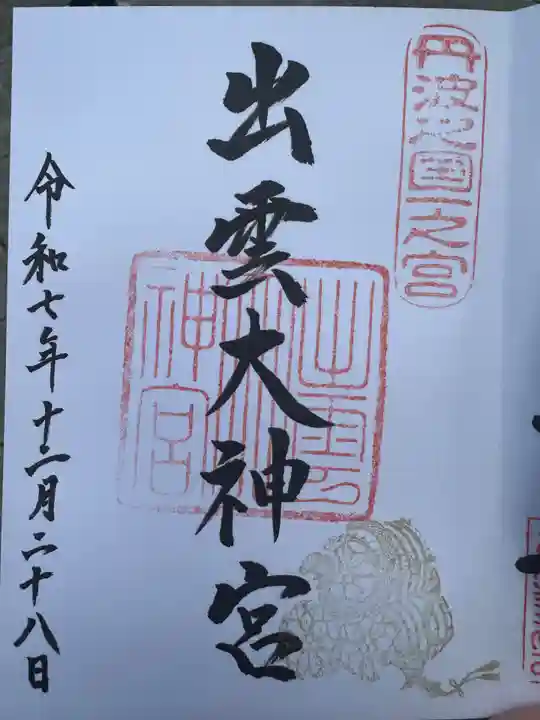 丹波之國一之宮
出雲大神宮
出雲大神宮
令和七年十二月二十八日